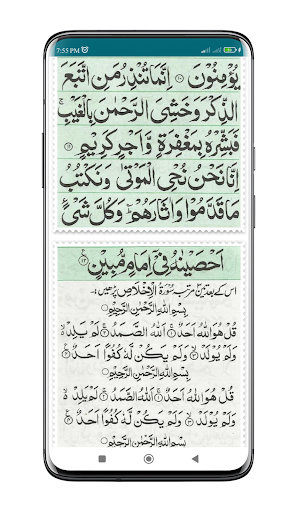 7:55 PM
يُؤْمِنُوْنَ ۝۱۰ اِنَّمَا تُنْذِرُ مَنِ اتَّبَعَ
الذِّكْرَ وَخَشِيَ الرَّحْمٰنَ بِالْغَيْبِ ۚ
فَبَشِّرْهُ بِمَغْفِرَةٍ وَّاَجْرٍ كَرِيْمٍ ۝۱۱
اِنَّا نَحْنُ نُحْيِ الْمَوْتٰى وَنَكْتُبُ
مَا قَدَّمُوْا وَاٰثَارَهُمْ ؕ وَكُلَّ شَيْءٍ
اَحْصَيْنٰهُ فِيْٓ اِمَامٍ مُّبِيْنٍ ۝۱۲
اس کے بعد تین مرتبہ سُوْرَةُ الْاِخْلَاص پڑھیں:۔
بِسْمِ اللّٰهِ الرَّحْمٰنِ الرَّحِيْمِ
قُلْ هُوَ اللّٰهُ اَحَدٌ ۝۱ اَللّٰهُ الصَّمَدُ ۝۲ لَمْ يَلِدْ ۙ
وَلَمْ يُوْلَدْ ۝۳ وَلَمْ يَكُنْ لَّهٗ كُفُوًا اَحَدٌ ۝۴
بِسْمِ اللّٰهِ الرَّحْمٰنِ الرَّحِيْمِ
قُلْ هُوَ اللّٰهُ اَحَدٌ ۝۱ اَللّٰهُ الصَّمَدُ ۝۲ لَمْ يَلِدْ ۙ
وَلَمْ يُوْلَدْ ۝۳ وَلَمْ يَكُنْ لَّهٗ كُفُوًا اَحَدٌ ۝۴
بِسْمِ اللّٰهِ الرَّحْمٰنِ الرَّحِيْمِ